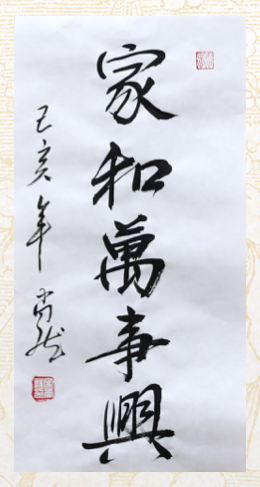 家和萬事興
己亥年